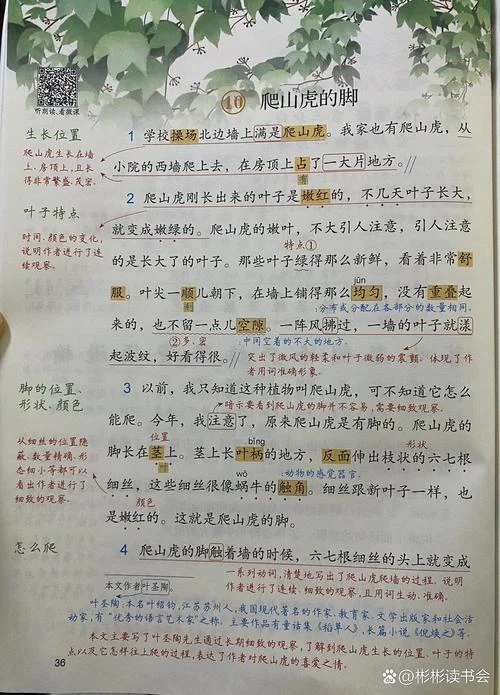 听朗读、看微课
10 爬山虎的脚
生长位置
爬山虎生长在墙
上、房顶上,且长
得非常繁盛、茂密。
1 学校操场北边墙上满是爬山虎。我家也有爬山虎,从
小院的西墙爬上去,在房顶上占了一大片地方。
有
叶子特点
时间、颜色的变化,
说明作者进行了连
续观察。
2 爬山虎刚长出来的叶子是嫩红的,不几天叶子长大,
就变成嫩绿的。爬山虎的嫩叶,不大引人注意,引人注意
特点①
的是长大了的叶子。那些叶子绿得那么新鲜,看着非常舒
jūn
服。叶尖一顺儿朝下,在墙上铺得那么均匀,没有重叠起
分布或分配在各部分的数量相同。
来的,也不留一点儿空隙。一阵风拂过,一墙的叶子就漾
②多、密
中间空着的不大的地方。
起波纹,好看得很。
突出了微风的轻柔和叶子微弱的震颤。体现了作
者用词准确形象。
脚的位置、
形状、颜色
从细丝的位置隐
蔽、数量精确、形
态细小等都可以
看出作者进行了
细致的观察。
3 以前,我只知道这种植物叫爬山虎,可不知道它怎么
暗示要看到爬山虎的脚并不容易,需要细致观察。
能爬。今年,我注意了,原来爬山虎是有脚的。爬山虎的
位置
bǐng
形状
脚长在茎上。茎上长叶柄的地方,反面伸出枝状的六七根
wō
动物的感觉器官。
细丝,这些细丝很像蜗牛的触角。细丝跟新叶子一样,也
颜色
是嫩红的。这就是爬山虎的脚。
怎么爬
4 爬山虎的脚触着墙的时候,六七根细丝的头上就变成
一系列动词,清楚地写出了爬山虎爬墙的过程。说明
作者进行了连续、细致的观察,且用词生动、准确。
本文作者叶圣陶。
叶圣陶:本名叶绍钧,江苏苏州人,我国现代著名的作家、教育家、文学出版家和社会活
动家,有“优秀的语言艺术家”之称。主要作品有童话集《稻草人》,长篇小说《倪焕之》等。
本文主要写了叶圣陶先生通过长期细致的观察,了解到爬山虎生长的位置、叶子的特
点以及它怎样往上爬的过程,表达了作者对爬山虎的喜爱之情。
36
@彬彬读书会